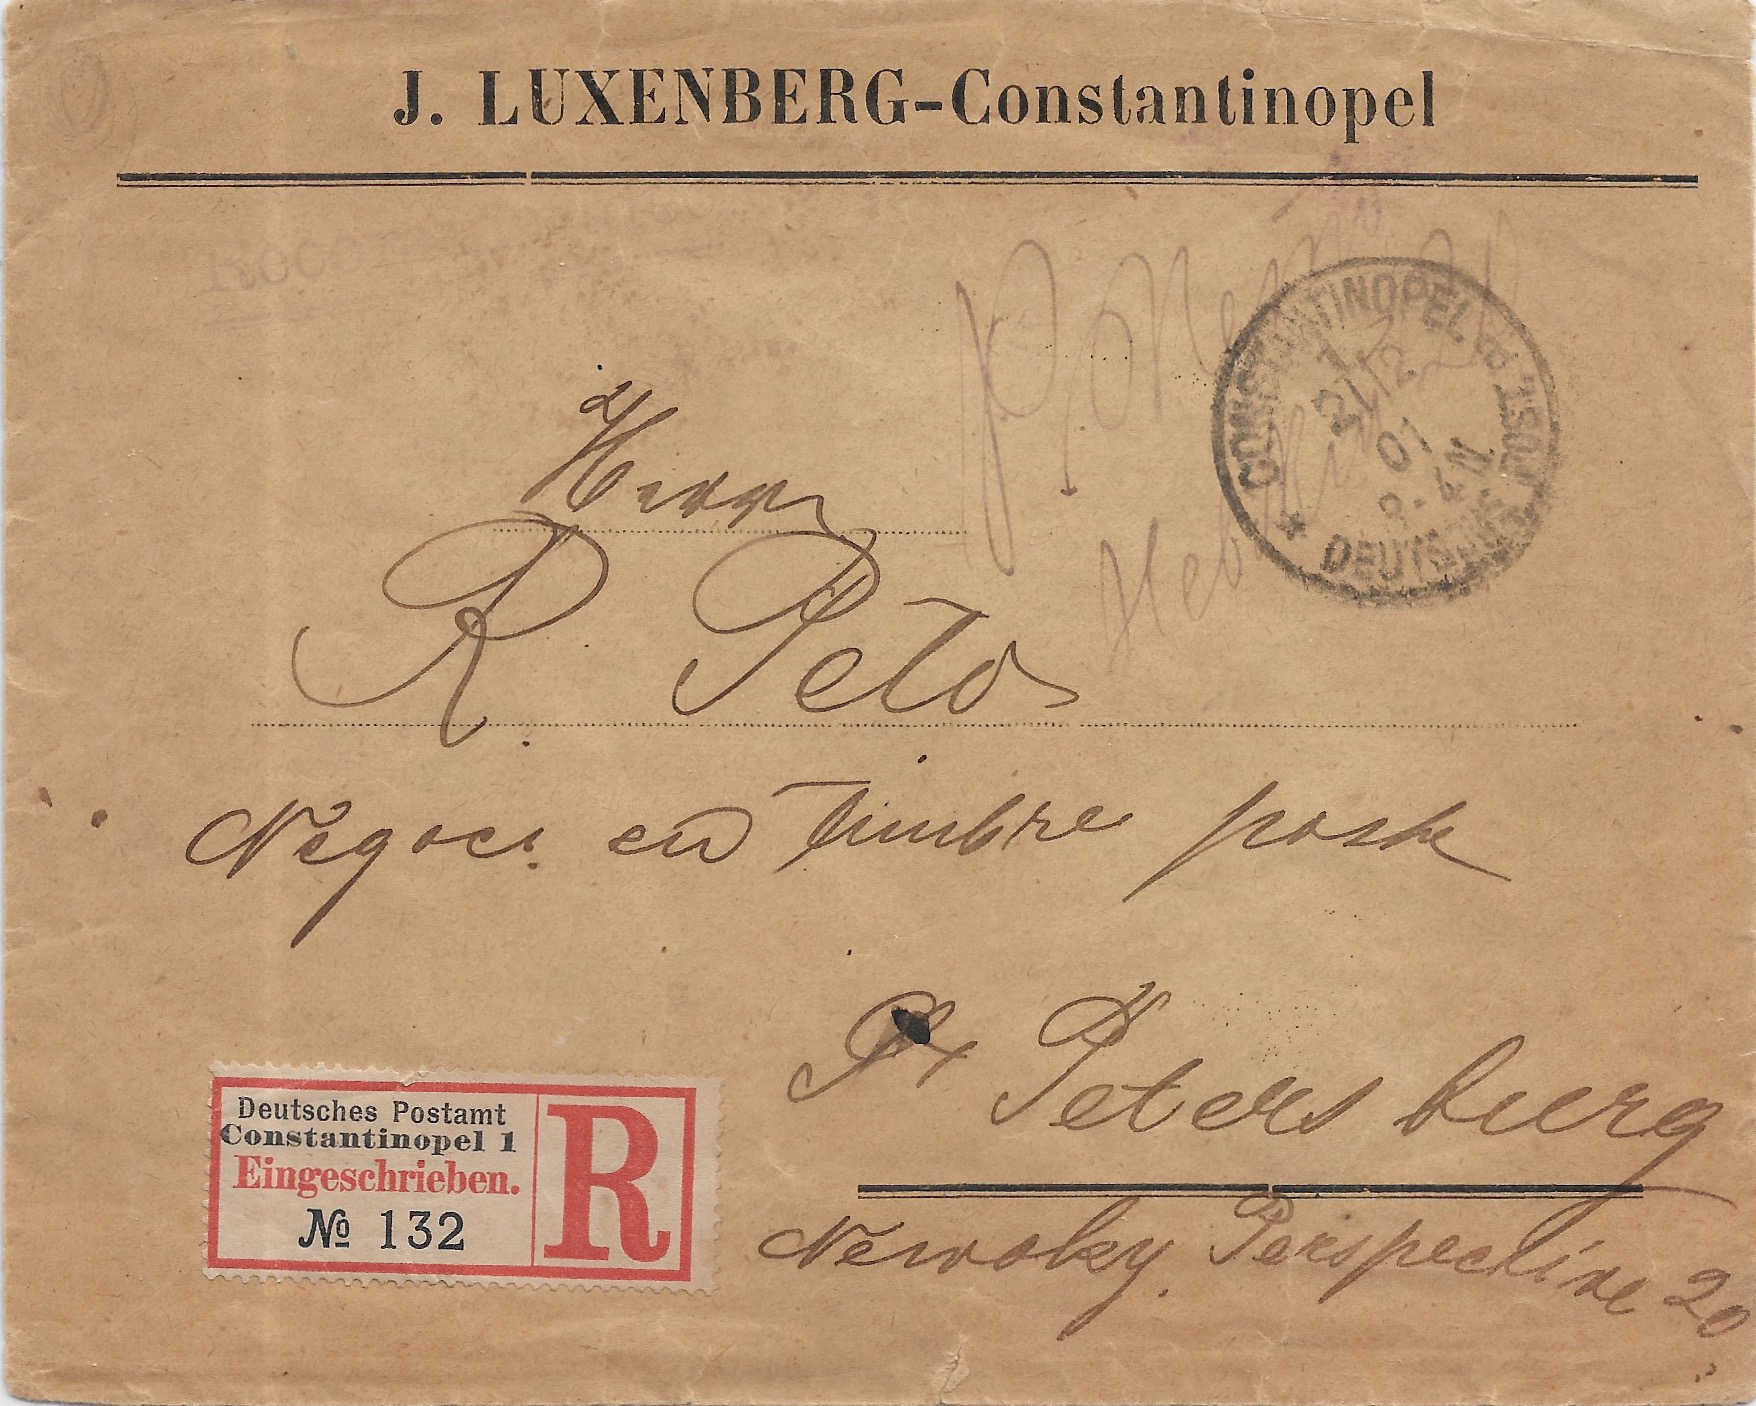 J. LUXENBERG-Constantinopel
CONSTANTINOPEL 1
* DEUTSCHE POST
21/12
01
3-4N
Herrn
R. Petos
Négoct. en Timbre poste
St Petersburg
Newsky. Perspective 20
Deutsches Postamt
Constantinopel 1
Eingeschrieben.
R
№ 132